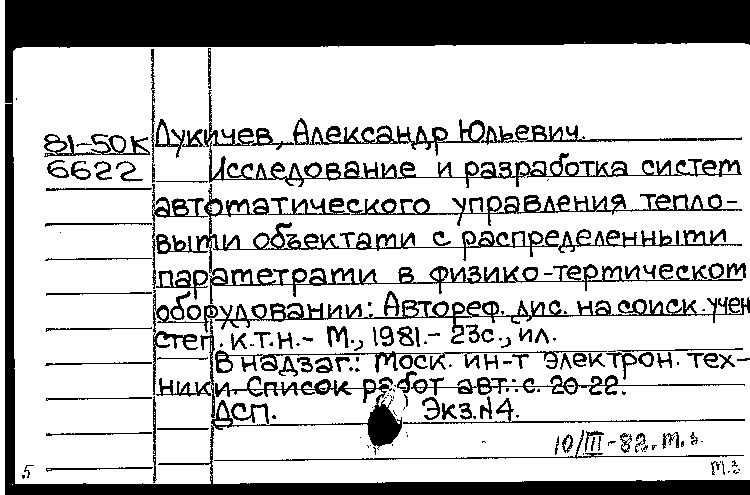 81-50К
6622
Лукичев, Александр Юльевич.
Исследование и разработка систем
автоматического управления тепло-
выми объектами с распределенными
параметрами в физико-термическом
оборудовании: Автореф. дис. на соиск. учен
степ. к.т.н.- М., 1981.- 23с., ил.
В надзаг.: Моск. ин-т электрон. тех-
ники. Список работ авт.: с. 20-22.
ДСП. Экз.№4.
10/III-82. М.З.
5 М.З